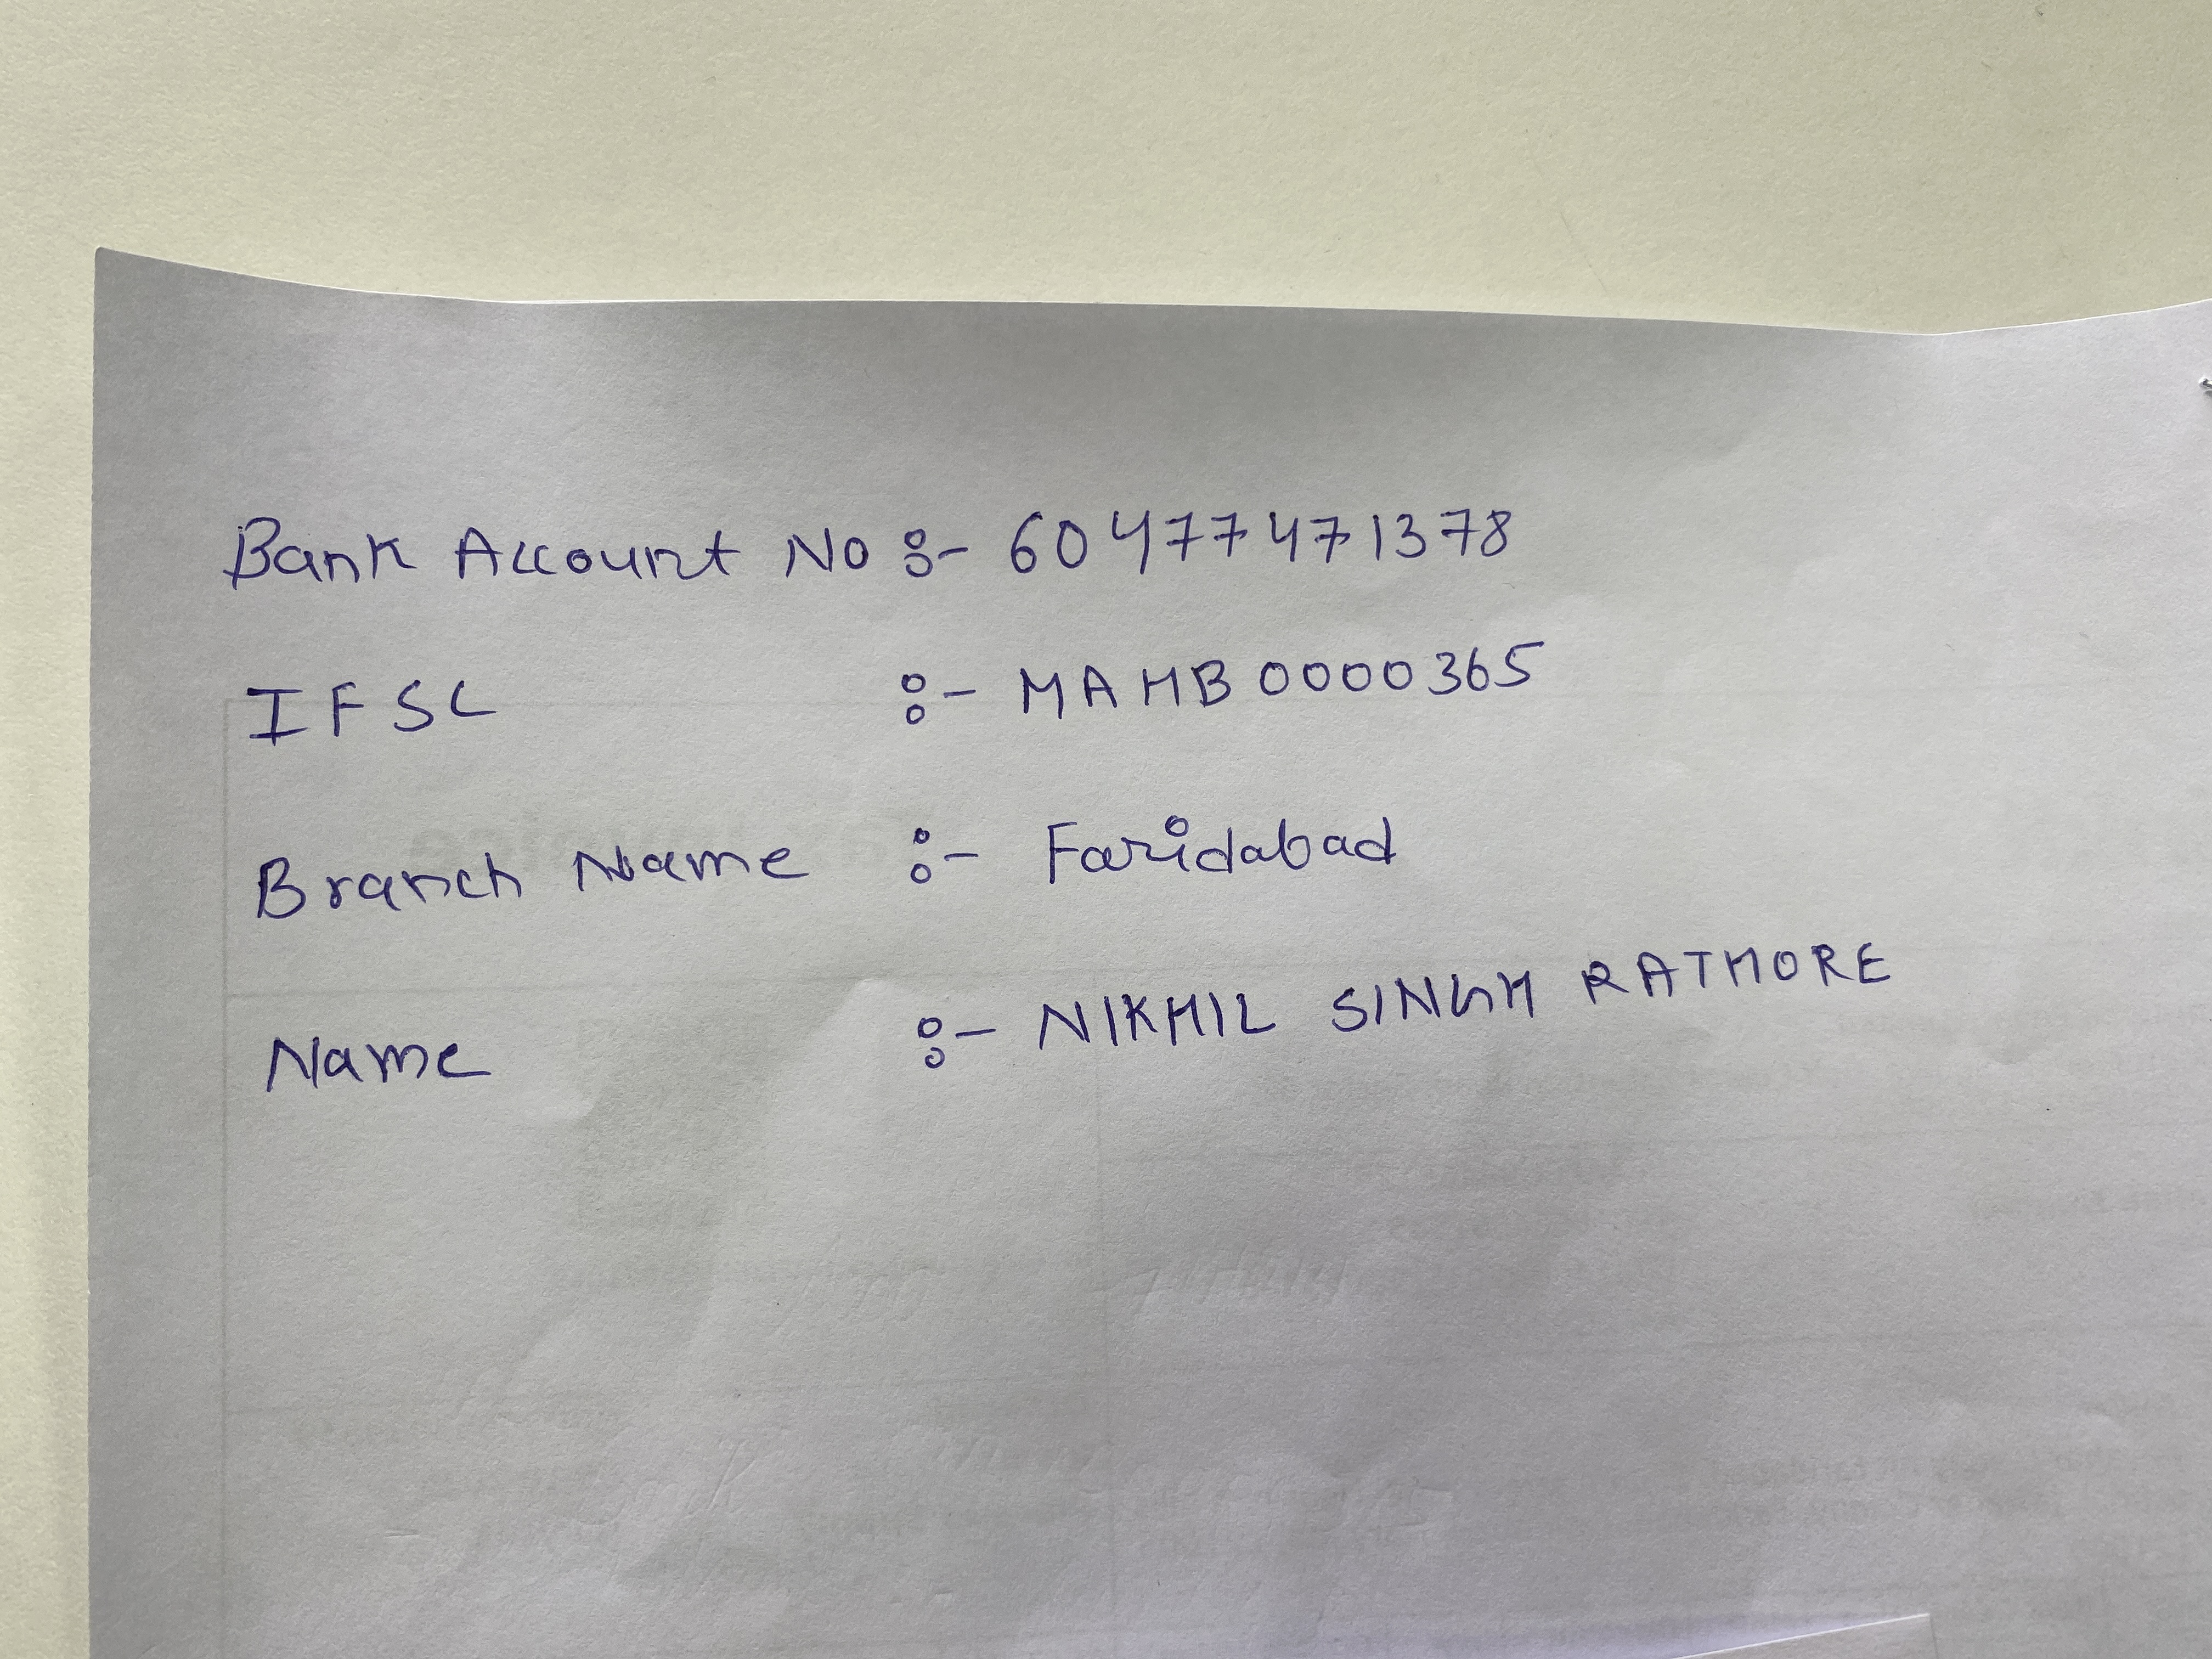 Bank Account No :- 60477471378
IFSC :- MAHB0000365
Branch Name :- Faridabad
Name :- NIKHIL SINGH RATHORE